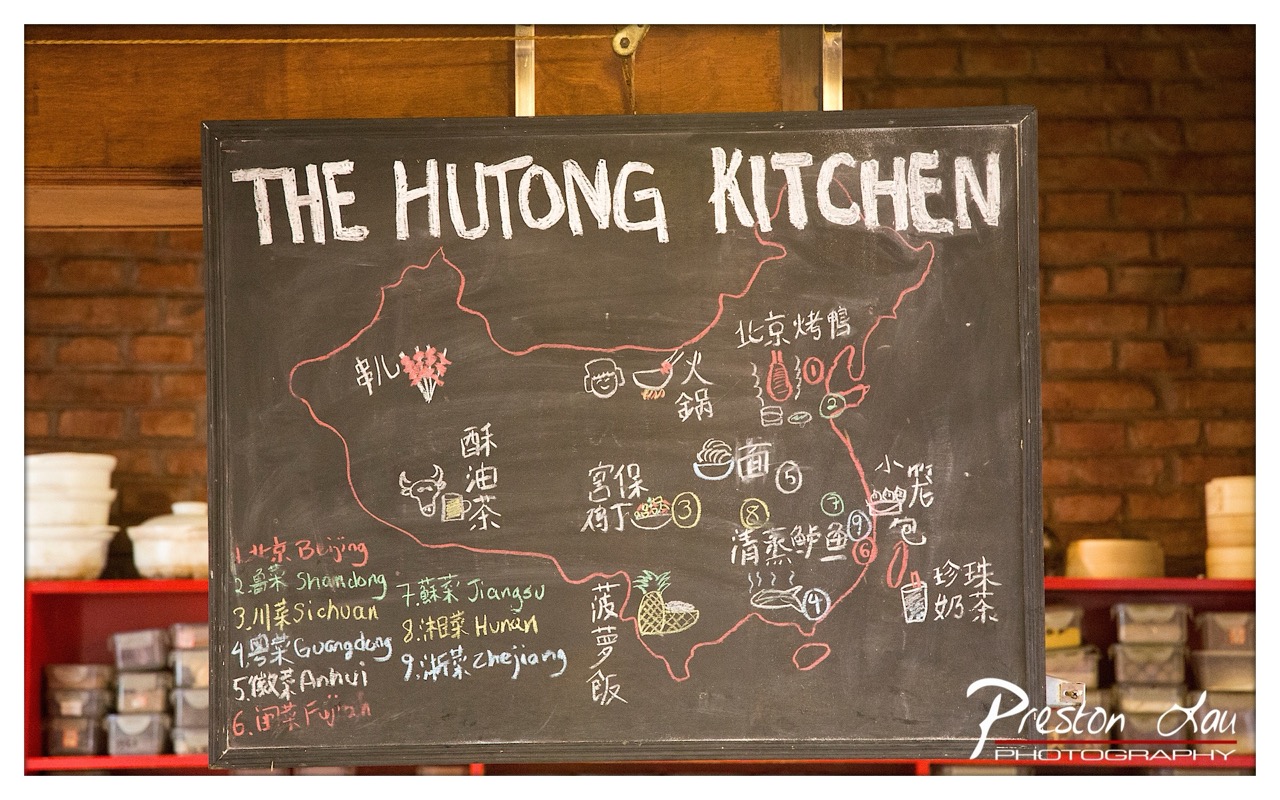 THE HUTONG KITCHEN
北京烤鸭
串儿
火
鍋
酥
油
茶
面
宮保
鸡丁
小笼
包
清蒸鲈鱼
珍珠
奶茶
菠
萝
飯
1
2
3
4
5
6
7
8
9
1.北京 Beijing
2.魯菜 Shandong
3.川菜 Sichuan
4.粤菜 Guangdong
5.徽菜 Anhui
6.闽菜 Fujian
7.蘇菜 Jiangsu
8.湘菜 Hunan
9.浙菜 Zhejiang
Preston Lau
PHOTOGRAPHY